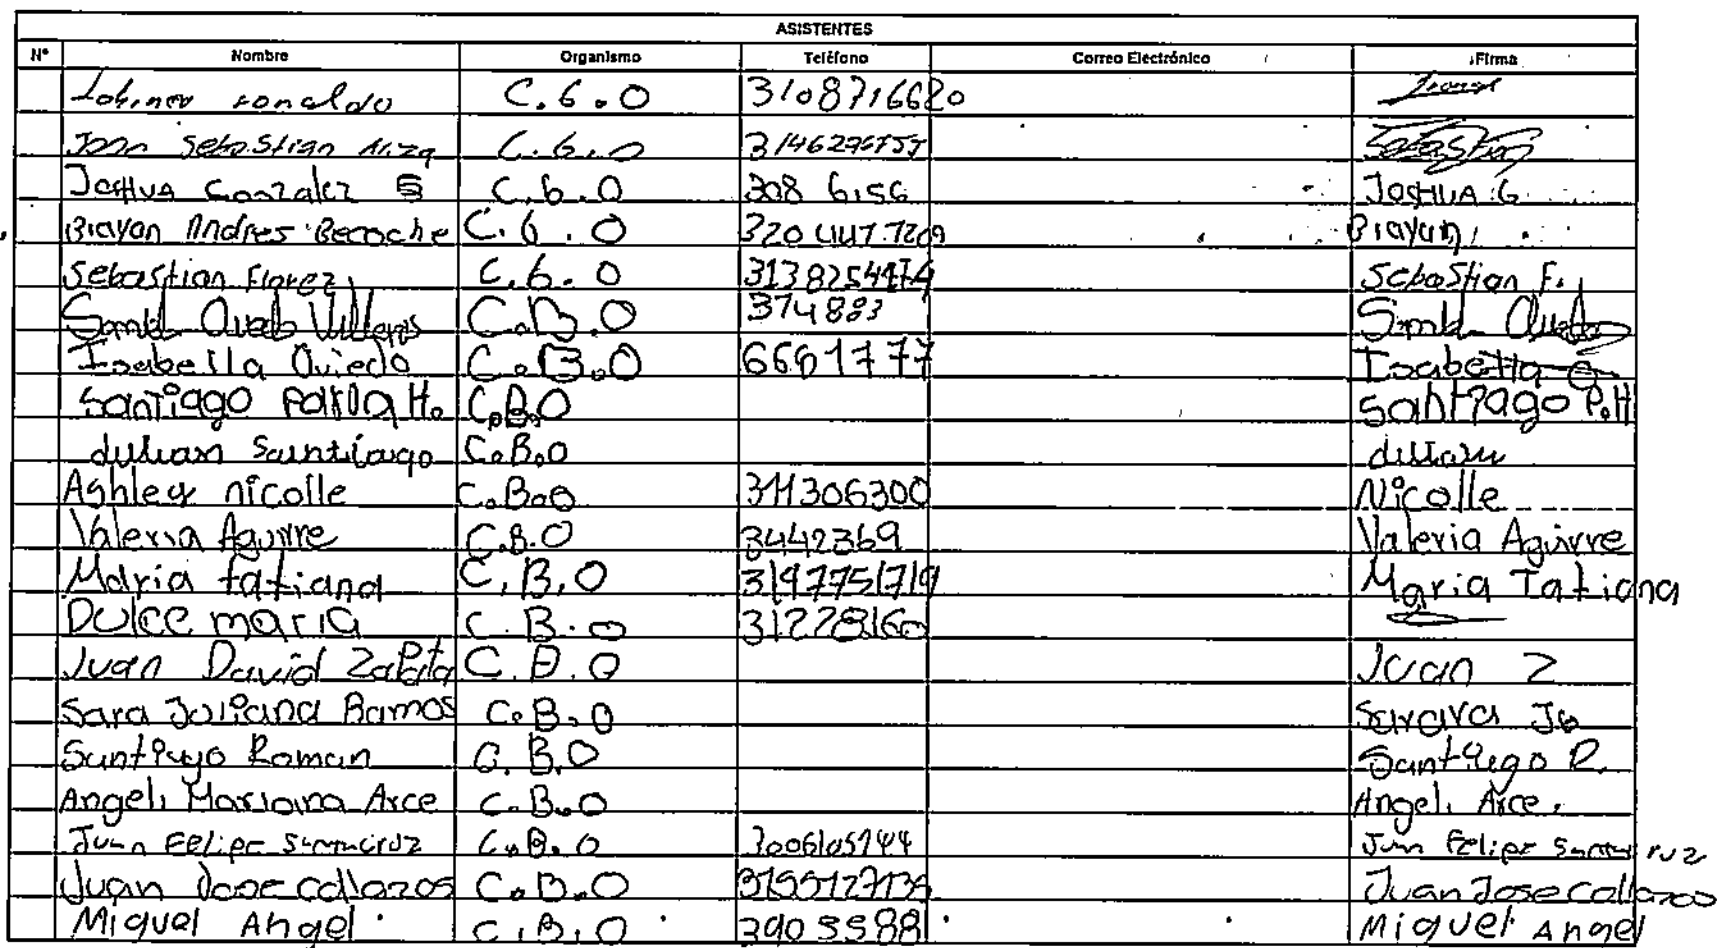 ASISTENTES
N° Nombre Organismo Teléfono Correo Electrónico Firma
ronaldo C.6.0 3108716620
Sebastian Ariza C.6.0 Sebastian
JosHUA Gonzalez C.6.0 308 6156 JosHUA G
Brayan Andres C.6.0 320 4477209 Brayan
Sebastian Florez C.6.0 Sebastian F.
C.B.O 374883
Isabella Oviedo C.B.O 6661777 Isabella O
Santiago Parra H. C.B.O Santiago P.H
Santiago C.B.O
Ashley nicolle C.B.O 311306300 Nicolle
Valeria Aguirre C.B.O 3442369 Valeria Aguirre
Maria tatiana C.B.O 3197751719 Maria Tatiana
DUlce maria C.B.O 31278160
Juan David Zapata C.B.O Juan Z
Sara Juliana Ramos C.B.O
Santiago Roman C.B.O Santiago R.
Angeli Mariana Arce C.B.O Angeli Arce.
Juan Felipe Santacruz C.B.O 3006105944 Juan Felipe Santacruz
Juan Jose Collazos C.B.O Juan Jose Collazos
Miguel Angel C.B.O 3905588 Miguel Angel